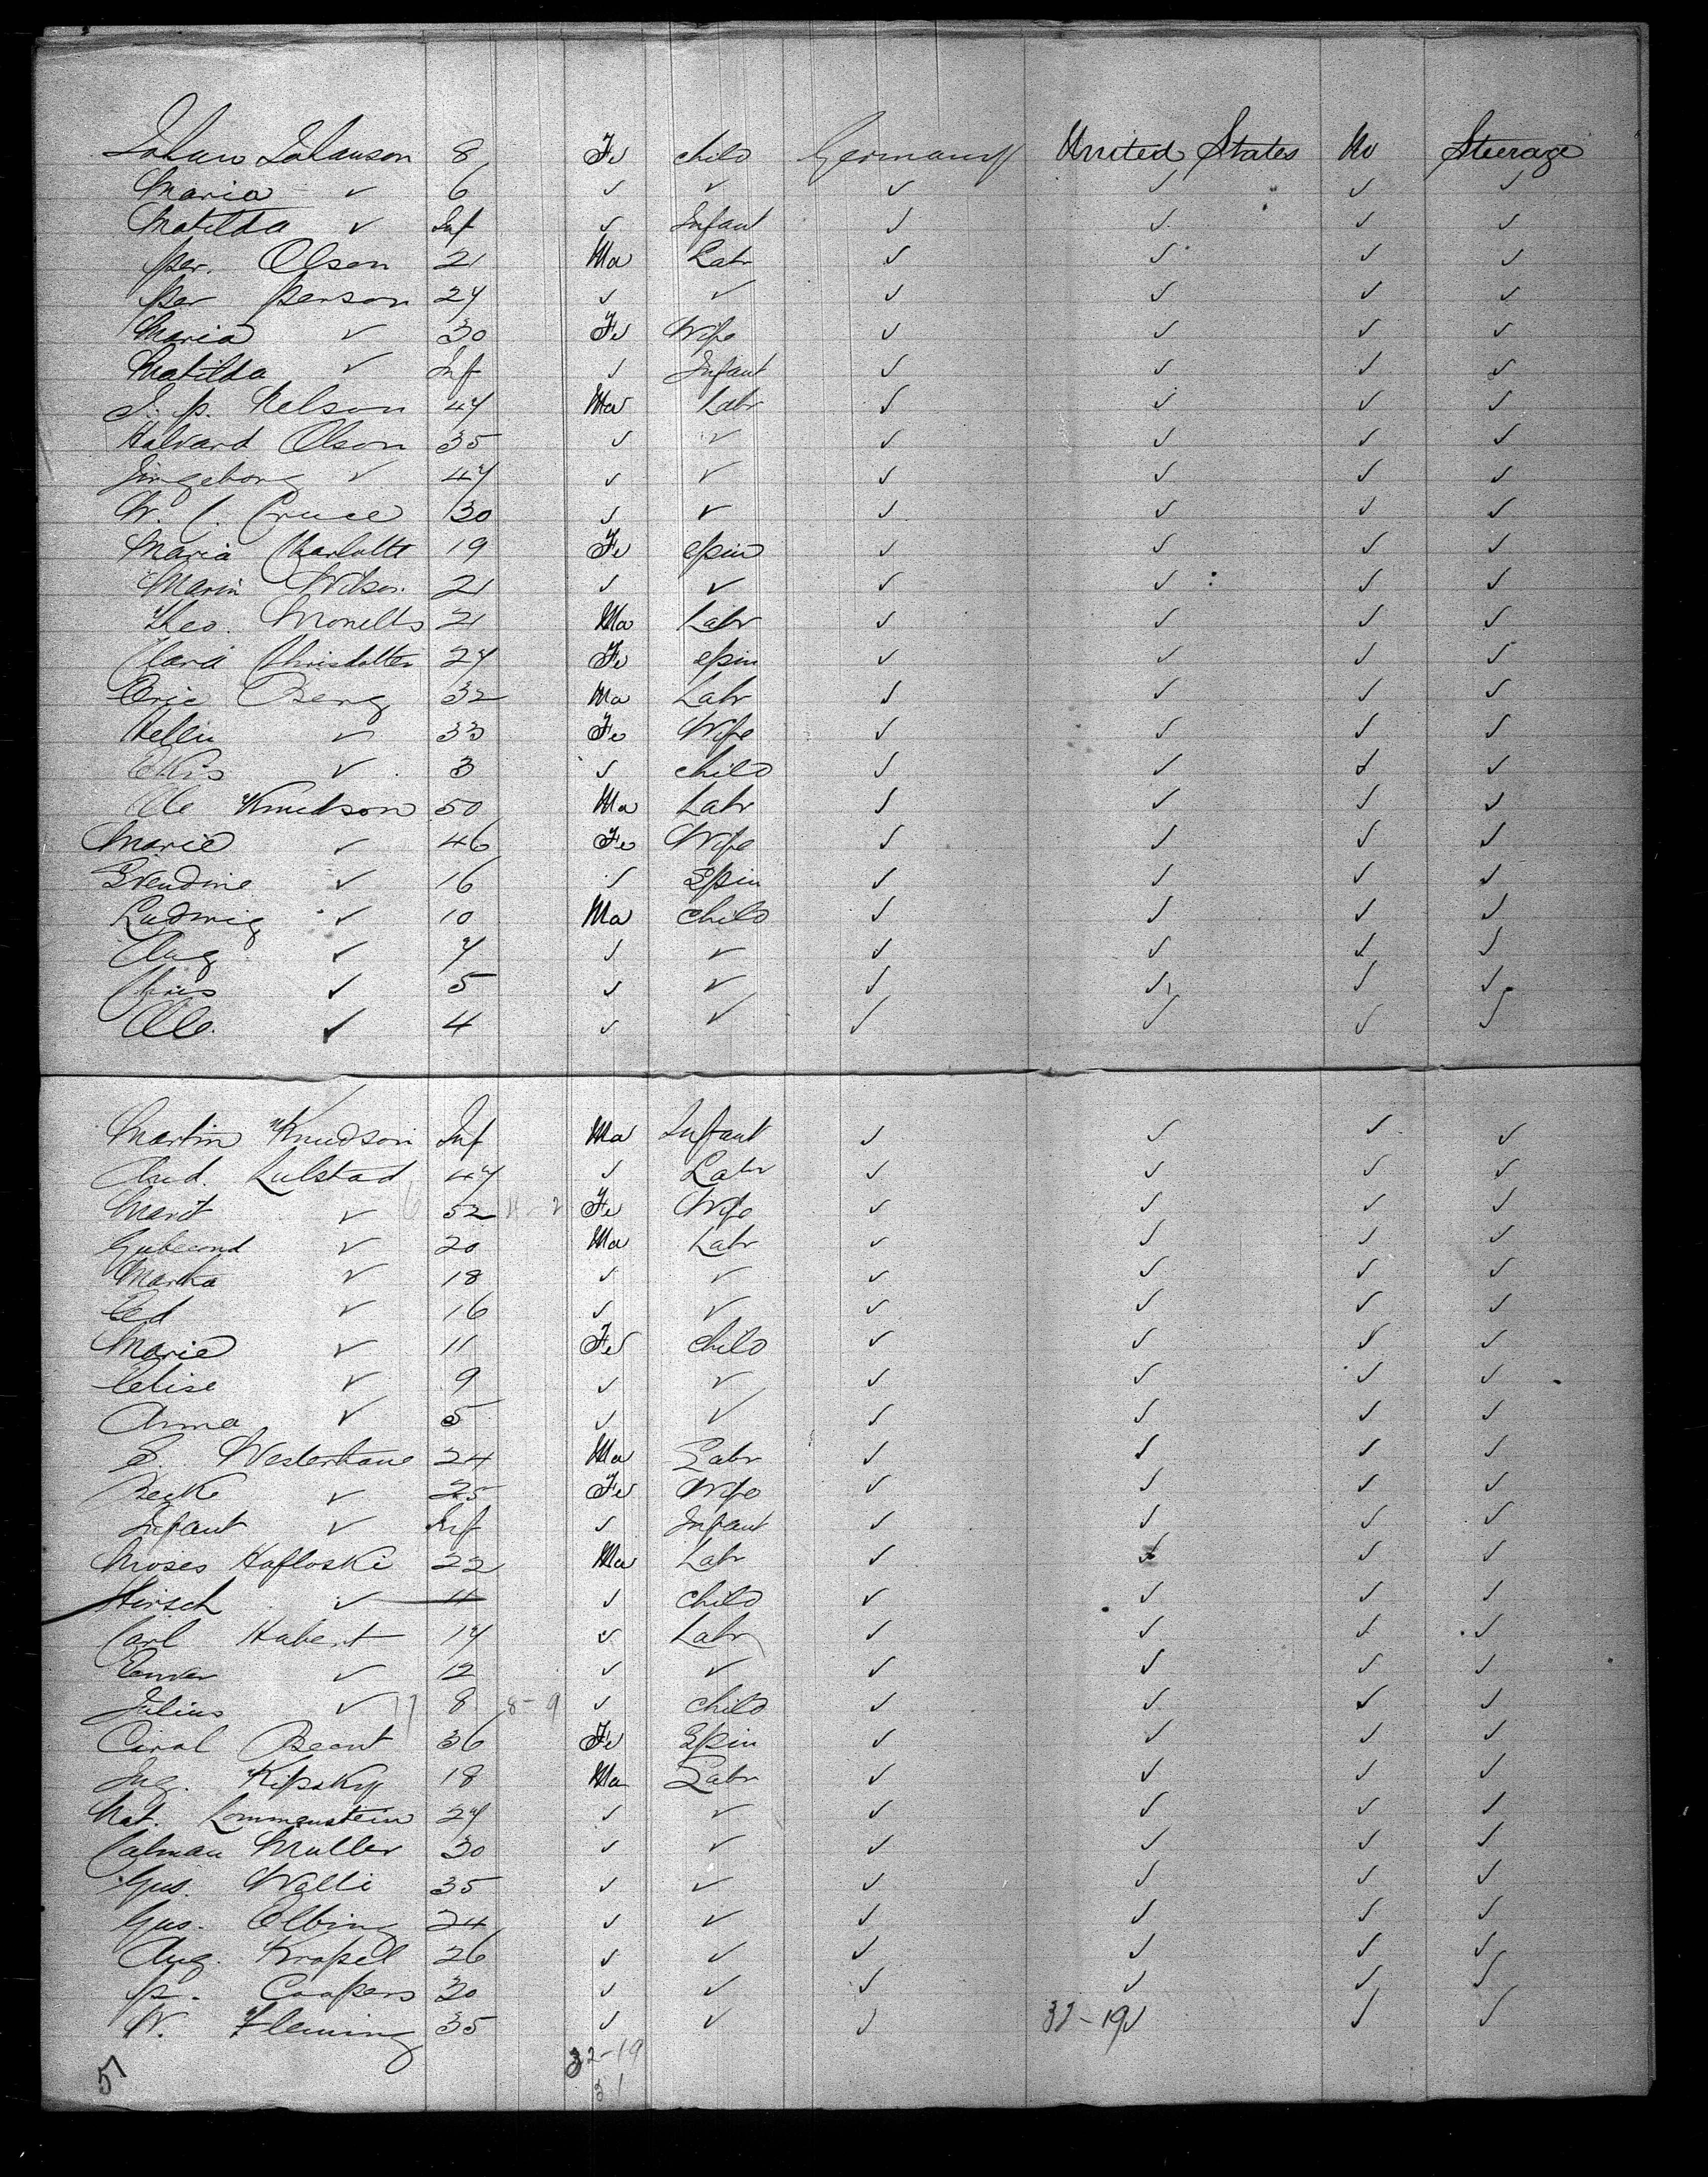 Johan Johanson 8 Fe child Germany United States No Steerage
Maria ✓ 6 ✓ ✓ ✓ ✓ ✓ ✓
Matilda ✓ Inf ✓ Infant ✓ ✓ ✓ ✓
Per. Olson 21 Ma Labr ✓ ✓ ✓ ✓
Per Person 27 ✓ ✓ ✓ ✓ ✓ ✓
Maria ✓ 30 Fe Wife ✓ ✓ ✓ ✓
Matilda ✓ Inf ✓ Infant ✓ ✓ ✓ ✓
J. P. Nelson 47 Ma Labr ✓ ✓ ✓ ✓
Halvard Olson 35 ✓ ✓ ✓ ✓ ✓ ✓
Ingeborg ✓ 47 ✓ ✓ ✓ ✓ ✓ ✓
W. C. Cruce 30 ✓ ✓ ✓ ✓ ✓ ✓
Maria Charlotte 19 Fe Spin ✓ ✓ ✓ ✓
Maria Nilson 21 ✓ ✓ ✓ ✓ ✓ ✓
Theo. 21 Ma Labr ✓ ✓ ✓ ✓
Clara 27 Fe Spin ✓ ✓ ✓ ✓
Eric Berg 32 Ma Labr ✓ ✓ ✓ ✓
✓ 33 Fe Wife ✓ ✓ ✓ ✓
✓ 3 ✓ child ✓ ✓ ✓ ✓
Ole Knudson 50 Ma Labr ✓ ✓ ✓ ✓
Marie ✓ 46 Fe Wife ✓ ✓ ✓ ✓
✓ 16 ✓ Spin ✓ ✓ ✓ ✓
Ludwig ✓ 10 Ma child ✓ ✓ ✓ ✓
Aug ✓ 7 ✓ ✓ ✓ ✓ ✓ ✓
Chris ✓ 5 ✓ ✓ ✓ ✓ ✓ ✓
Ole. ✓ 4 ✓ ✓ ✓ ✓ ✓ ✓
Martin Knudson Inf Ma Infant ✓ ✓ ✓ ✓
And. Lulstad 47 ✓ Labr ✓ ✓ ✓ ✓
Marit ✓ 52 Fe Wife ✓ ✓ ✓ ✓
✓ 20 Ma Labr ✓ ✓ ✓ ✓
Martha ✓ 18 ✓ ✓ ✓ ✓ ✓ ✓
Ed ✓ 16 ✓ ✓ ✓ ✓ ✓ ✓
Marie ✓ 11 Fe child ✓ ✓ ✓ ✓
Elise ✓ 9 ✓ ✓ ✓ ✓ ✓ ✓
Anna ✓ 5 ✓ ✓ ✓ ✓ ✓ ✓
S. 24 Ma Labr ✓ ✓ ✓ ✓
✓ 25 Fe Wife ✓ ✓ ✓ ✓
Infant ✓ Inf ✓ Infant ✓ ✓ ✓ ✓
Moses Hafloski 22 Ma Labr ✓ ✓ ✓ ✓
Hirsch ✓ 11 ✓ child ✓ ✓ ✓ ✓
Carl Hubert 17 ✓ Labr ✓ ✓ ✓ ✓
✓ 12 ✓ ✓ ✓ ✓ ✓ ✓
Julius ✓ 8 8-9 ✓ child ✓ ✓ ✓ ✓
36 Fe Spin ✓ ✓ ✓ ✓
Kipsky 18 Ma Labr ✓ ✓ ✓ ✓
Nat. Lommenstein 27 ✓ ✓ ✓ ✓ ✓ ✓
Calman Muller 30 ✓ ✓ ✓ ✓ ✓ ✓
Gus. Walli 35 ✓ ✓ ✓ ✓ ✓ ✓
Gus. Olbing 24 ✓ ✓ ✓ ✓ ✓ ✓
Aug. Kropel 26 ✓ ✓ ✓ ✓ ✓ ✓
P. Coopers 30 ✓ ✓ ✓ ✓ ✓ ✓
W. Fleming 35 ✓ ✓ ✓ 32-19 ✓ ✓ ✓
32-19
51
31